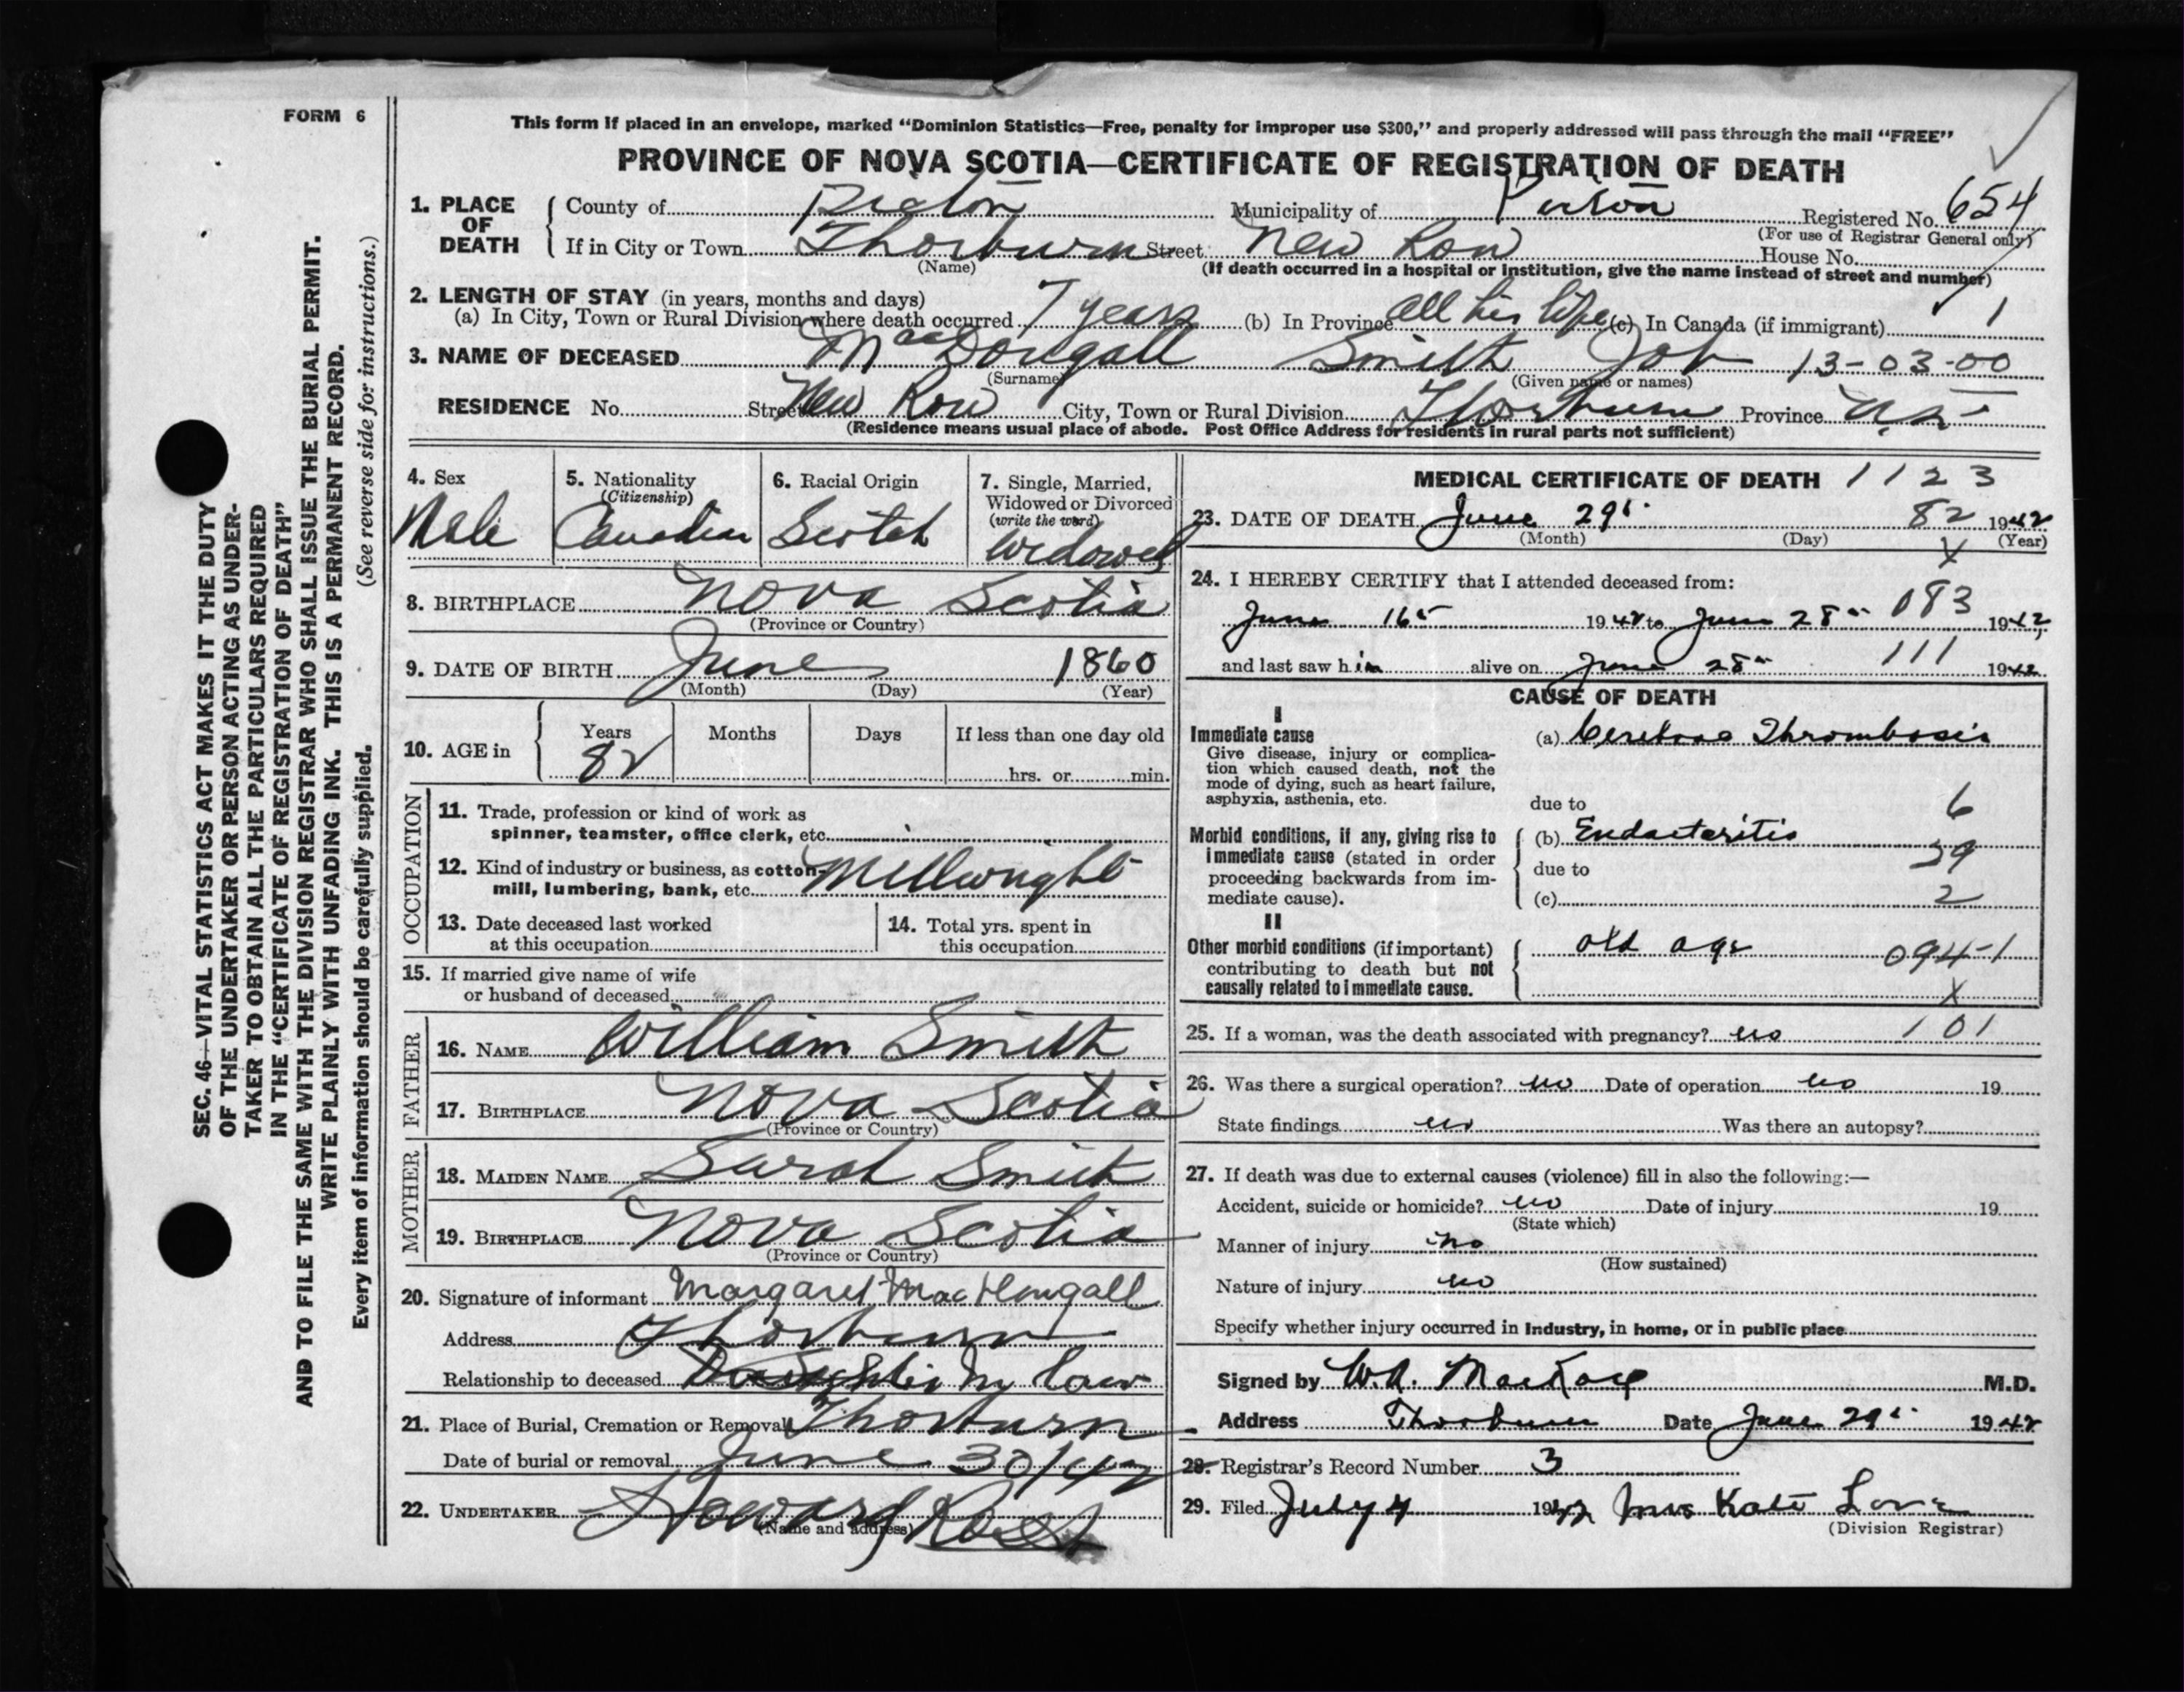 FORM 6
SEC. 46—VITAL STATISTICS ACT MAKES IT THE DUTY
OF THE UNDERTAKER OR PERSON ACTING AS UNDER-
TAKER TO OBTAIN ALL THE PARTICULARS REQUIRED
IN THE "CERTIFICATE OF REGISTRATION OF DEATH"
AND TO FILE THE SAME WITH THE DIVISION REGISTRAR WHO SHALL ISSUE THE BURIAL PERMIT.
WRITE PLAINLY WITH UNFADING INK. THIS IS A PERMANENT RECORD.
Every item of information should be carefully supplied. (See reverse side for instructions.)
This form if placed in an envelope, marked "Dominion Statistics—Free, penalty for improper use $300," and properly addressed will pass through the mail "FREE"
PROVINCE OF NOVA SCOTIA—CERTIFICATE OF REGISTRATION OF DEATH
1. PLACE OF DEATH County of Pictou Municipality of Pictou Registered No. 654
(For use of Registrar General only)
If in City or Town Thorburn Street New Row House No.
(Name) (If death occurred in a hospital or institution, give the name instead of street and number)
2. LENGTH OF STAY (in years, months and days)
(a) In City, Town or Rural Division where death occurred 7 years (b) In Province all his life (c) In Canada (if immigrant) 1
3. NAME OF DECEASED MacDougall Smith Job 13-03-00
(Surname) (Given name or names)
RESIDENCE No. Street New Row City, Town or Rural Division Thorburn Province N.S.
(Residence means usual place of abode. Post Office Address for residents in rural parts not sufficient)
4. Sex 5. Nationality (Citizenship) 6. Racial Origin 7. Single, Married, Widowed or Divorced (write the word)
Male Canadian Scotch Widowed
8. BIRTHPLACE Nova Scotia
(Province or Country)
9. DATE OF BIRTH June 1860
(Month) (Day) (Year)
10. AGE in Years Months Days If less than one day old
82 hrs. or min.
OCCUPATION
11. Trade, profession or kind of work as
spinner, teamster, office clerk, etc.
12. Kind of industry or business, as cotton-
mill, lumbering, bank, etc. Millwright
13. Date deceased last worked
at this occupation
14. Total yrs. spent in
this occupation
15. If married give name of wife
or husband of deceased
FATHER
16. NAME William Smith
17. BIRTHPLACE Nova Scotia
(Province or Country)
MOTHER
18. MAIDEN NAME Sarah Smith
19. BIRTHPLACE Nova Scotia
(Province or Country)
20. Signature of informant Margaret MacDougall
Address Thorburn
Relationship to deceased Daughter In law
21. Place of Burial, Cremation or Removal Thorburn
Date of burial or removal June 30/42
22. UNDERTAKER Howard
(Name and address)
MEDICAL CERTIFICATE OF DEATH 1123
23. DATE OF DEATH June 29 82 1942
(Month) (Day) (Year)
X
24. I HEREBY CERTIFY that I attended deceased from:
083
June 16 1942 to June 28 1942,
and last saw him alive on June 28 111 1942
CAUSE OF DEATH
I
Immediate cause
Give disease, injury or complica-
tion which caused death, not the
mode of dying, such as heart failure,
asphyxia, asthenia, etc.
(a) Thrombosis
due to 6
Morbid conditions, if any, giving rise to
immediate cause (stated in order
proceeding backwards from im-
mediate cause).
(b) Endarteritis
39
due to
(c) 2
II
Other morbid conditions (if important)
contributing to death but not
causally related to immediate cause.
old age 094-1
X
25. If a woman, was the death associated with pregnancy? no 101
26. Was there a surgical operation? no Date of operation no 19
State findings no Was there an autopsy?
27. If death was due to external causes (violence) fill in also the following:—
Accident, suicide or homicide? no Date of injury 19
(State which)
Manner of injury no
(How sustained)
Nature of injury no
Specify whether injury occurred in industry, in home, or in public place
Signed by W.A. MacKay M.D.
Address Thorburn Date June 29 1942
28. Registrar's Record Number 3
29. Filed July 4 1942 Mrs Kate Love
(Division Registrar)